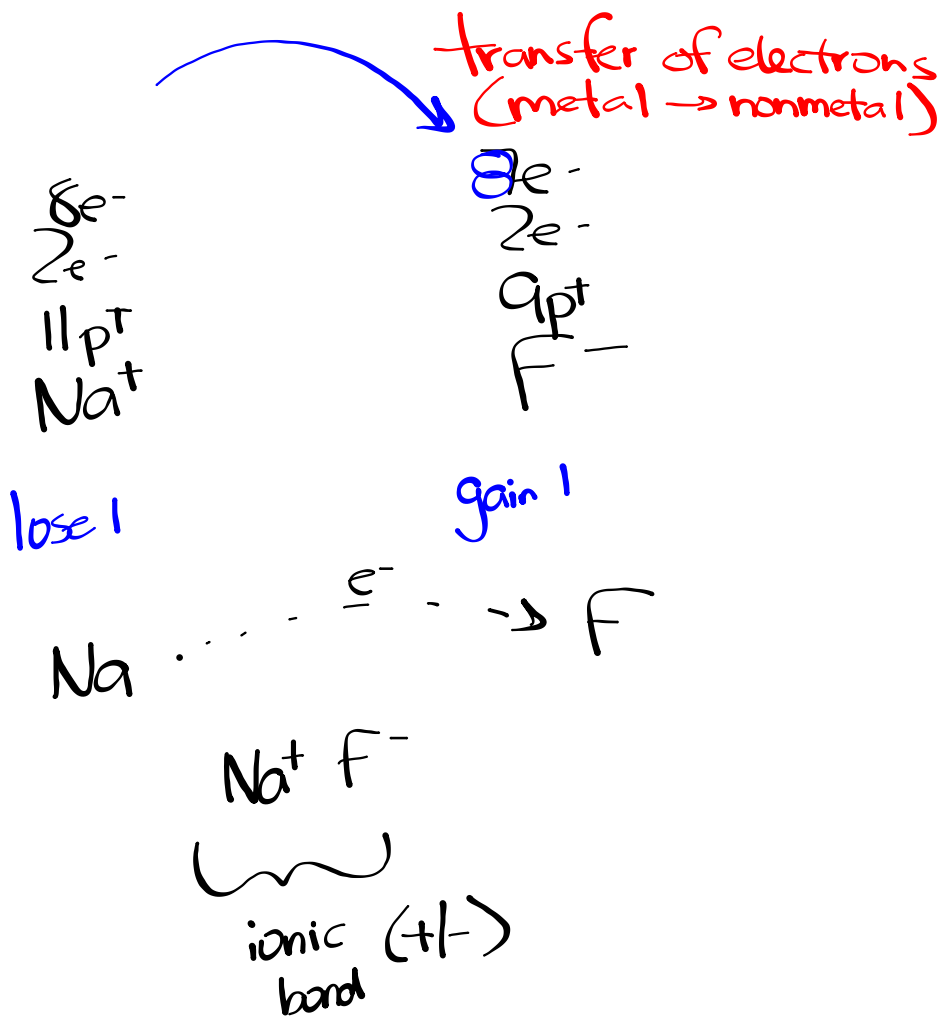 transfer of electrons
(metal → nonmetal)
8e⁻
2e⁻
11p⁺
Na⁺
lose 1
8e⁻
2e⁻
9p⁺
F⁻
gain 1
Na e⁻ → F
Na⁺ F⁻
ionic (+/-)
bond